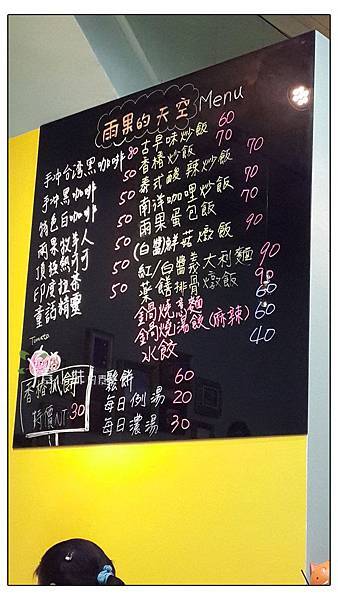 雨果的天空 Menu
手沖台湾黑咖啡 80
手沖黑咖啡 50
白咖啡 50
雨果牧羊人 50
頂級熱可可 50
印度拉茶 50
童話精靈 50
古早味炒飯 60
香椿炒飯 70
泰式酸辣炒飯 70
南洋咖哩炒飯 70
雨果蛋包飯 70
(白醬)鮮菇燉飯 90
紅/白醬義大利麵 90
藥膳排骨燉飯 90
鍋燒烏麵 60
鍋燒湯飯(麻辣) 60
水餃 40
香椿抓餅
特價NT 30
鬆餅 60
每日例湯 20
每日濃湯 30